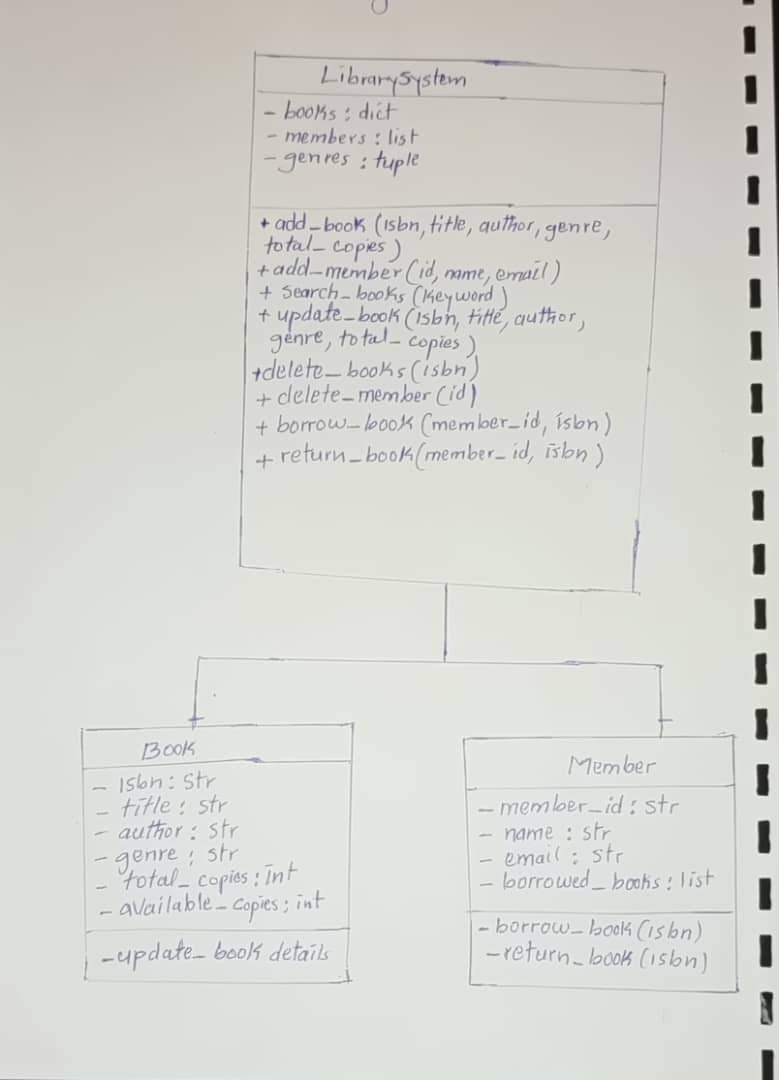 LibrarySystem
- books : dict
- members : list
- genres : tuple
+ add_book (isbn, title, author, genre,
total_copies)
+ add_member (id, name, email)
+ search_books (keyword)
+ update_book (isbn, title, author,
genre, total_copies)
+ delete_books (isbn)
+ delete_member (id)
+ borrow_book (member_id, isbn)
+ return_book (member_id, isbn)
Book
- isbn : str
- title : str
- author : str
- genre ; str
- total_copies : int
- available_copies ; int
- update_book details
Member
- member_id : str
- name : str
- email : str
- borrowed_books : list
- borrow_book (isbn)
- return_book (isbn)